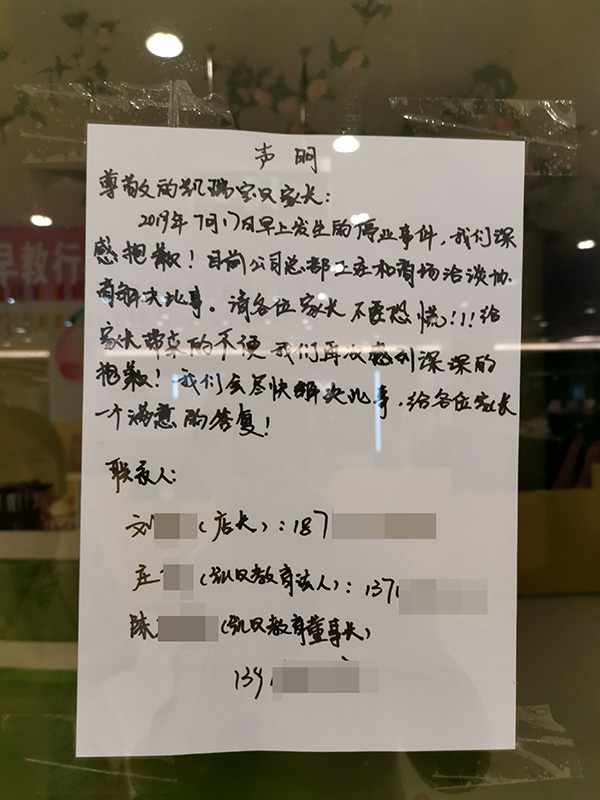 声明
尊敬的凯瑞宝贝家长:
2019年7月17日早上发生的停业事件,我们深
感抱歉!目前公司总部正在和商场洽谈协
商解决此事。请各位家长不要恐慌!!!给
家长带来的不便 我们再次感到深深的
抱歉!我们会尽快解决此事,给各位家长
一个满意的答复!
联系人:
刘 (店长):187
庄 (凯贝教育法人):137
陈 (凯贝教育董事长)
139
早教行